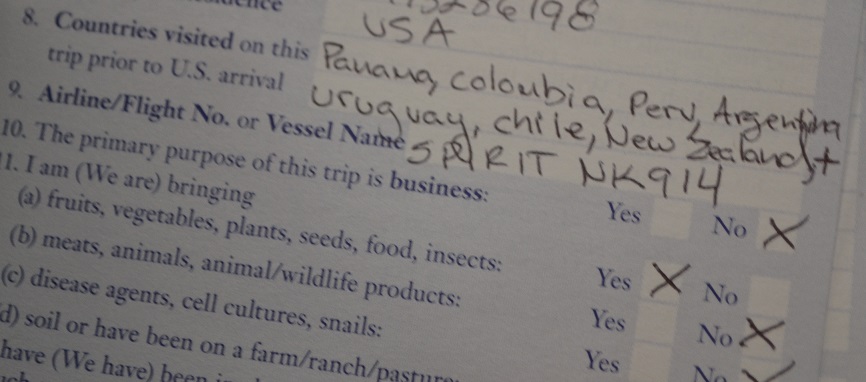 USA
8. Countries visited on this
trip prior to U.S. arrival
Panama, coloubia, Peru, Argentina
Uruguay, chile, New Zealand, +
9. Airline/Flight No. or Vessel Name SPIRIT NK914
10. The primary purpose of this trip is business: Yes No X
11. I am (We are) bringing
(a) fruits, vegetables, plants, seeds, food, insects: Yes X No
(b) meats, animals, animal/wildlife products: Yes No X
(c) disease agents, cell cultures, snails: Yes No X
(d) soil or have been on a farm/ranch/pasture:
have (We have) been